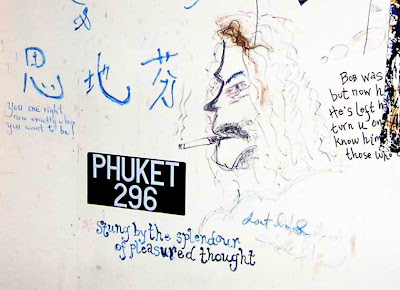 思地芬
You are right
now exactly where
you want to be!
PHUKET
296
Stung by the splendour
of pleasured thought
Bob was
but now h
He's left h
turn u
know him
those who